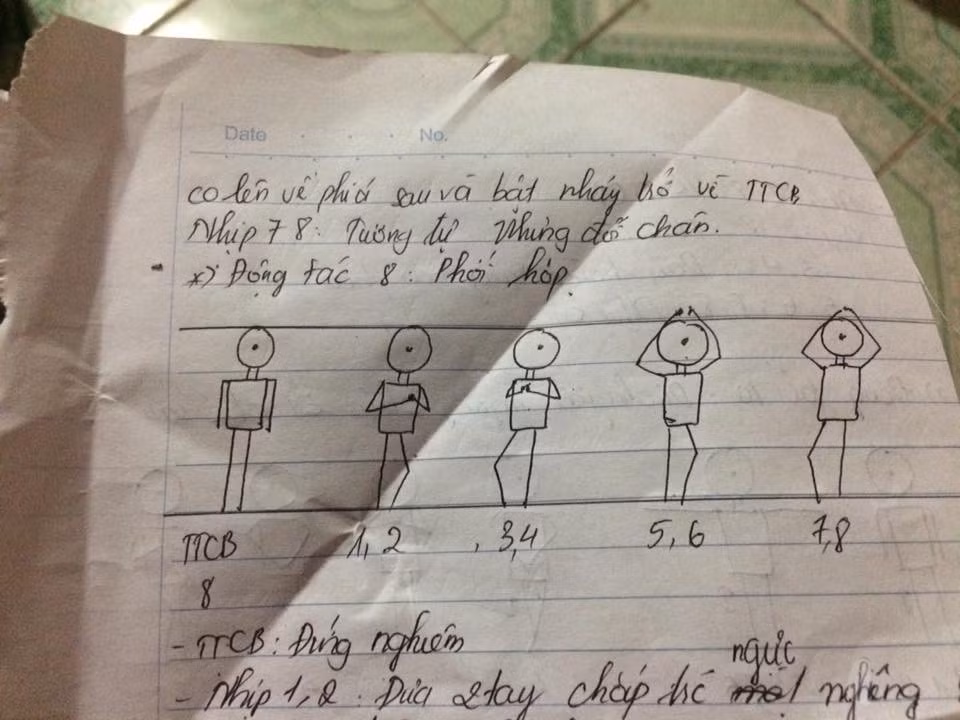 Date . . . No.
co lên về phía sau và bật nhảy trở về TTCB
Nhịp 7 8: Tương tự nhưng đổi chân.
*) Động tác 8: Phối hợp.
TTCB 1, 2 , 3,4 5, 6 7,8
8
- TTCB: Đứng nghiêm
ngực
- Nhịp 1, 2: Đưa 2 tay chắp trc nghiêng